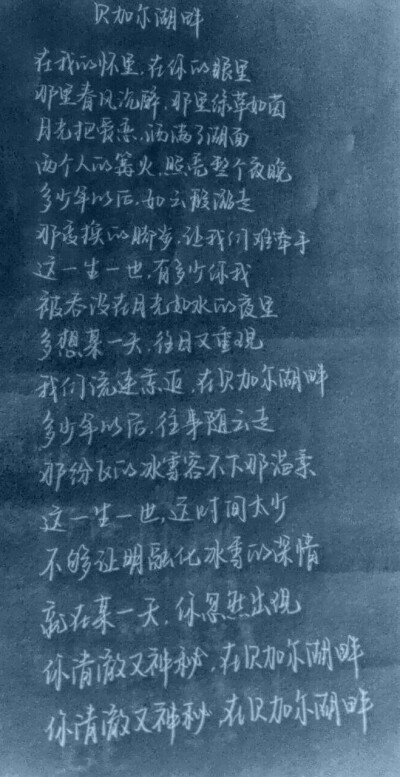 贝加尔湖畔
在我的怀里,在你的眼里
那里春风沉醉,那里绿草如茵
月光把爱恋,洒满了湖面
两个人的篝火,照亮整个夜晚
多少年以后,如云般游走
那变换的脚步,让我们难牵手
这一生一世,有多少你我
被吞没在月光如水的夜里
多想某一天,往日又重现
我们流连忘返,在贝加尔湖畔
多少年以后,往事随云走
那纷飞的冰雪容不下那温柔
这一生一世,这时间太少
不够证明融化冰雪的深情
就在某一天,你忽然出现
你清澈又神秘,在贝加尔湖畔
你清澈又神秘,在贝加尔湖畔